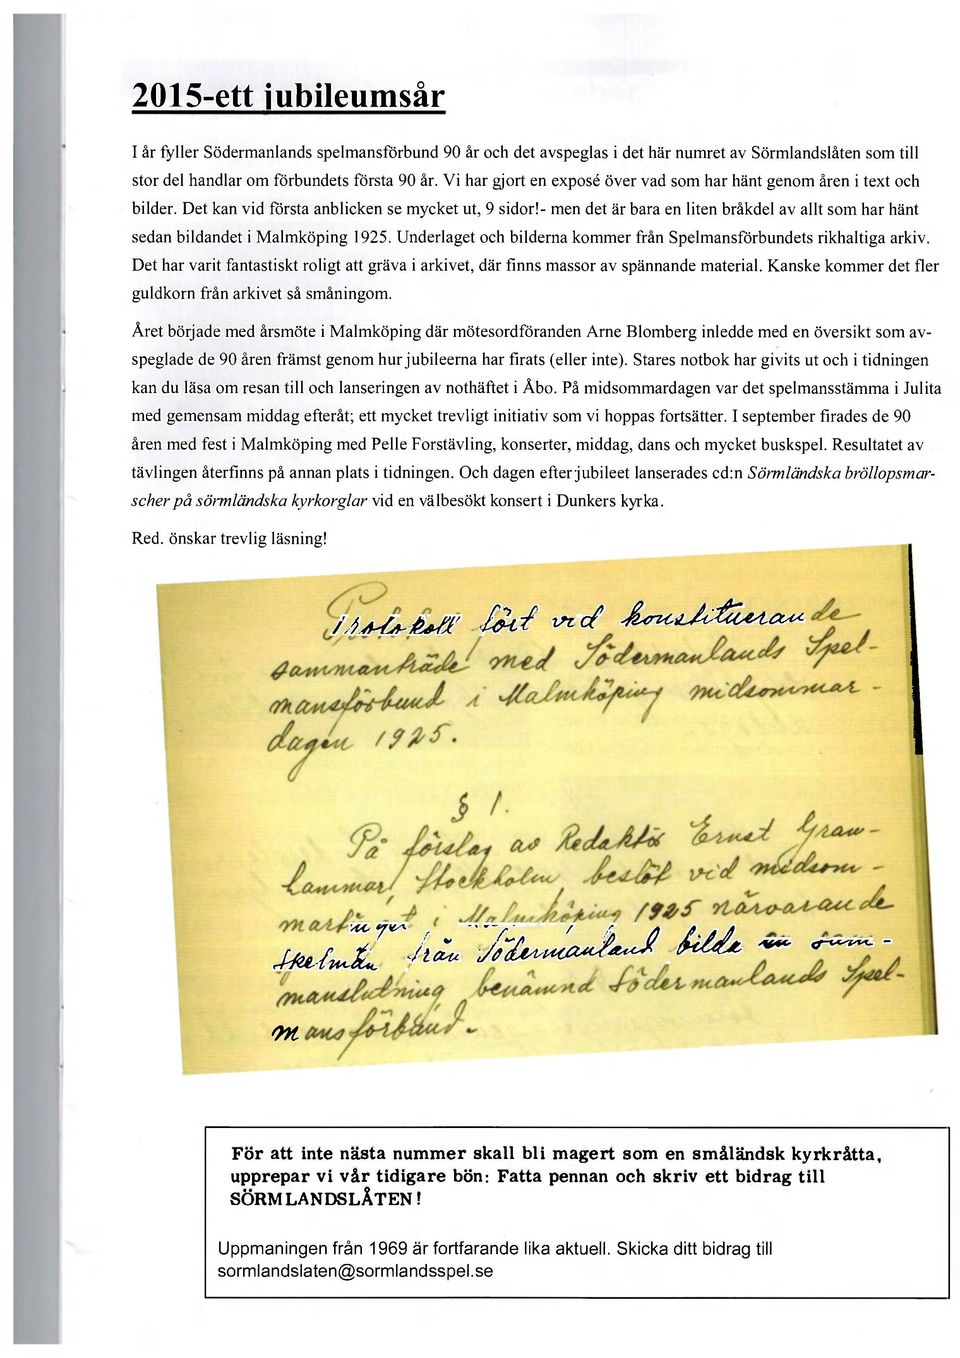 2015-ett jubileumsår
I år fyller Södermanlands spelmansförbund 90 år och det avspeglas i det här numret av Sörmlandslåten som till
stor del handlar om förbundets första 90 år. Vi har gjort en exposé över vad som har hänt genom åren i text och
bilder. Det kan vid första anblicken se mycket ut, 9 sidor!- men det är bara en liten bråkdel av allt som har hänt
sedan bildandet i Malmköping 1925. Underlaget och bilderna kommer från Spelmansförbundets rikhaltiga arkiv.
Det har varit fantastiskt roligt att gräva i arkivet, där finns massor av spännande material. Kanske kommer det fler
guldkorn från arkivet så småningom.
Året började med årsmöte i Malmköping där mötesordföranden Arne Blomberg inledde med en översikt som av-
speglade de 90 åren främst genom hur jubileerna har firats (eller inte). Stares notbok har givits ut och i tidningen
kan du läsa om resan till och lanseringen av nothäftet i Åbo. På midsommardagen var det spelmansstämma i Julita
med gemensam middag efteråt; ett mycket trevligt initiativ som vi hoppas fortsätter. I september firades de 90
åren med fest i Malmköping med Pelle Forstävling, konserter, middag, dans och mycket buskspel. Resultatet av
tävlingen återfinns på annan plats i tidningen. Och dagen efter jubileet lanserades cd:n Sörmländska bröllopsmar-
scher på sörmländska kyrkorglar vid en välbesökt konsert i Dunkers kyrka.
Red. önskar trevlig läsning!
Protokoll fört vid konstituerande
sammanträde med Södermanlands Spel-
mansförbund i Malmköping midsommar-
dagen 1925.
§ 1.
På förslag av Redaktör Ernst Gran-
hammar, Stockholm, beslöt vid midsom-
mar i Malmköping 1925 närvarande
spelmän från Södermanland bilda en sam-
manslutning benämnd Södermanlands Spel-
mansförbund.
För att inte nästa nummer skall bli magert som en småländsk kyrkråtta,
upprepar vi vår tidigare bön: Fatta pennan och skriv ett bidrag till
SÖRMLANDSLÅTEN!
Uppmaningen från 1969 är fortfarande lika aktuell. Skicka ditt bidrag till
sormlandslaten@sormlandsspel.se